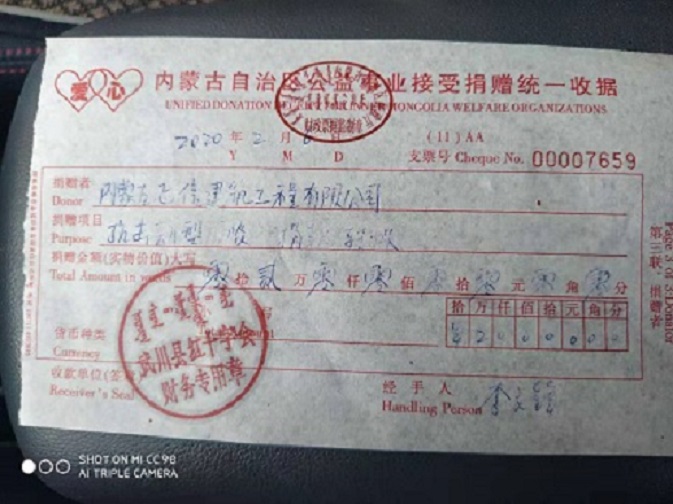 爱心 内蒙古自治区公益事业接受捐赠统一收据
UNIFIED DONATION MONGOLIA WELFARE ORGANIZATIONS
2020 年 2 月 日 (11) AA
Y M D 支票号 Cheque No. 00007659
捐赠者
Donor 内蒙古 建筑工程有限公司
捐赠项目
Purpose 抗击新型
捐赠金额(实物价值)大写
Total Amount in words 零拾贰万零仟零佰 拾零元零角零分
拾万仟佰拾元角分
货币种类
Currency
武川县红十字会
财务专用章
收款单位
Receiver's Seal
经手人
Handling Person 李
第三联:捐赠者
Page 3 or 3:Donator
SHOT ON MI CC 9
AI TRIPLE CAMERA